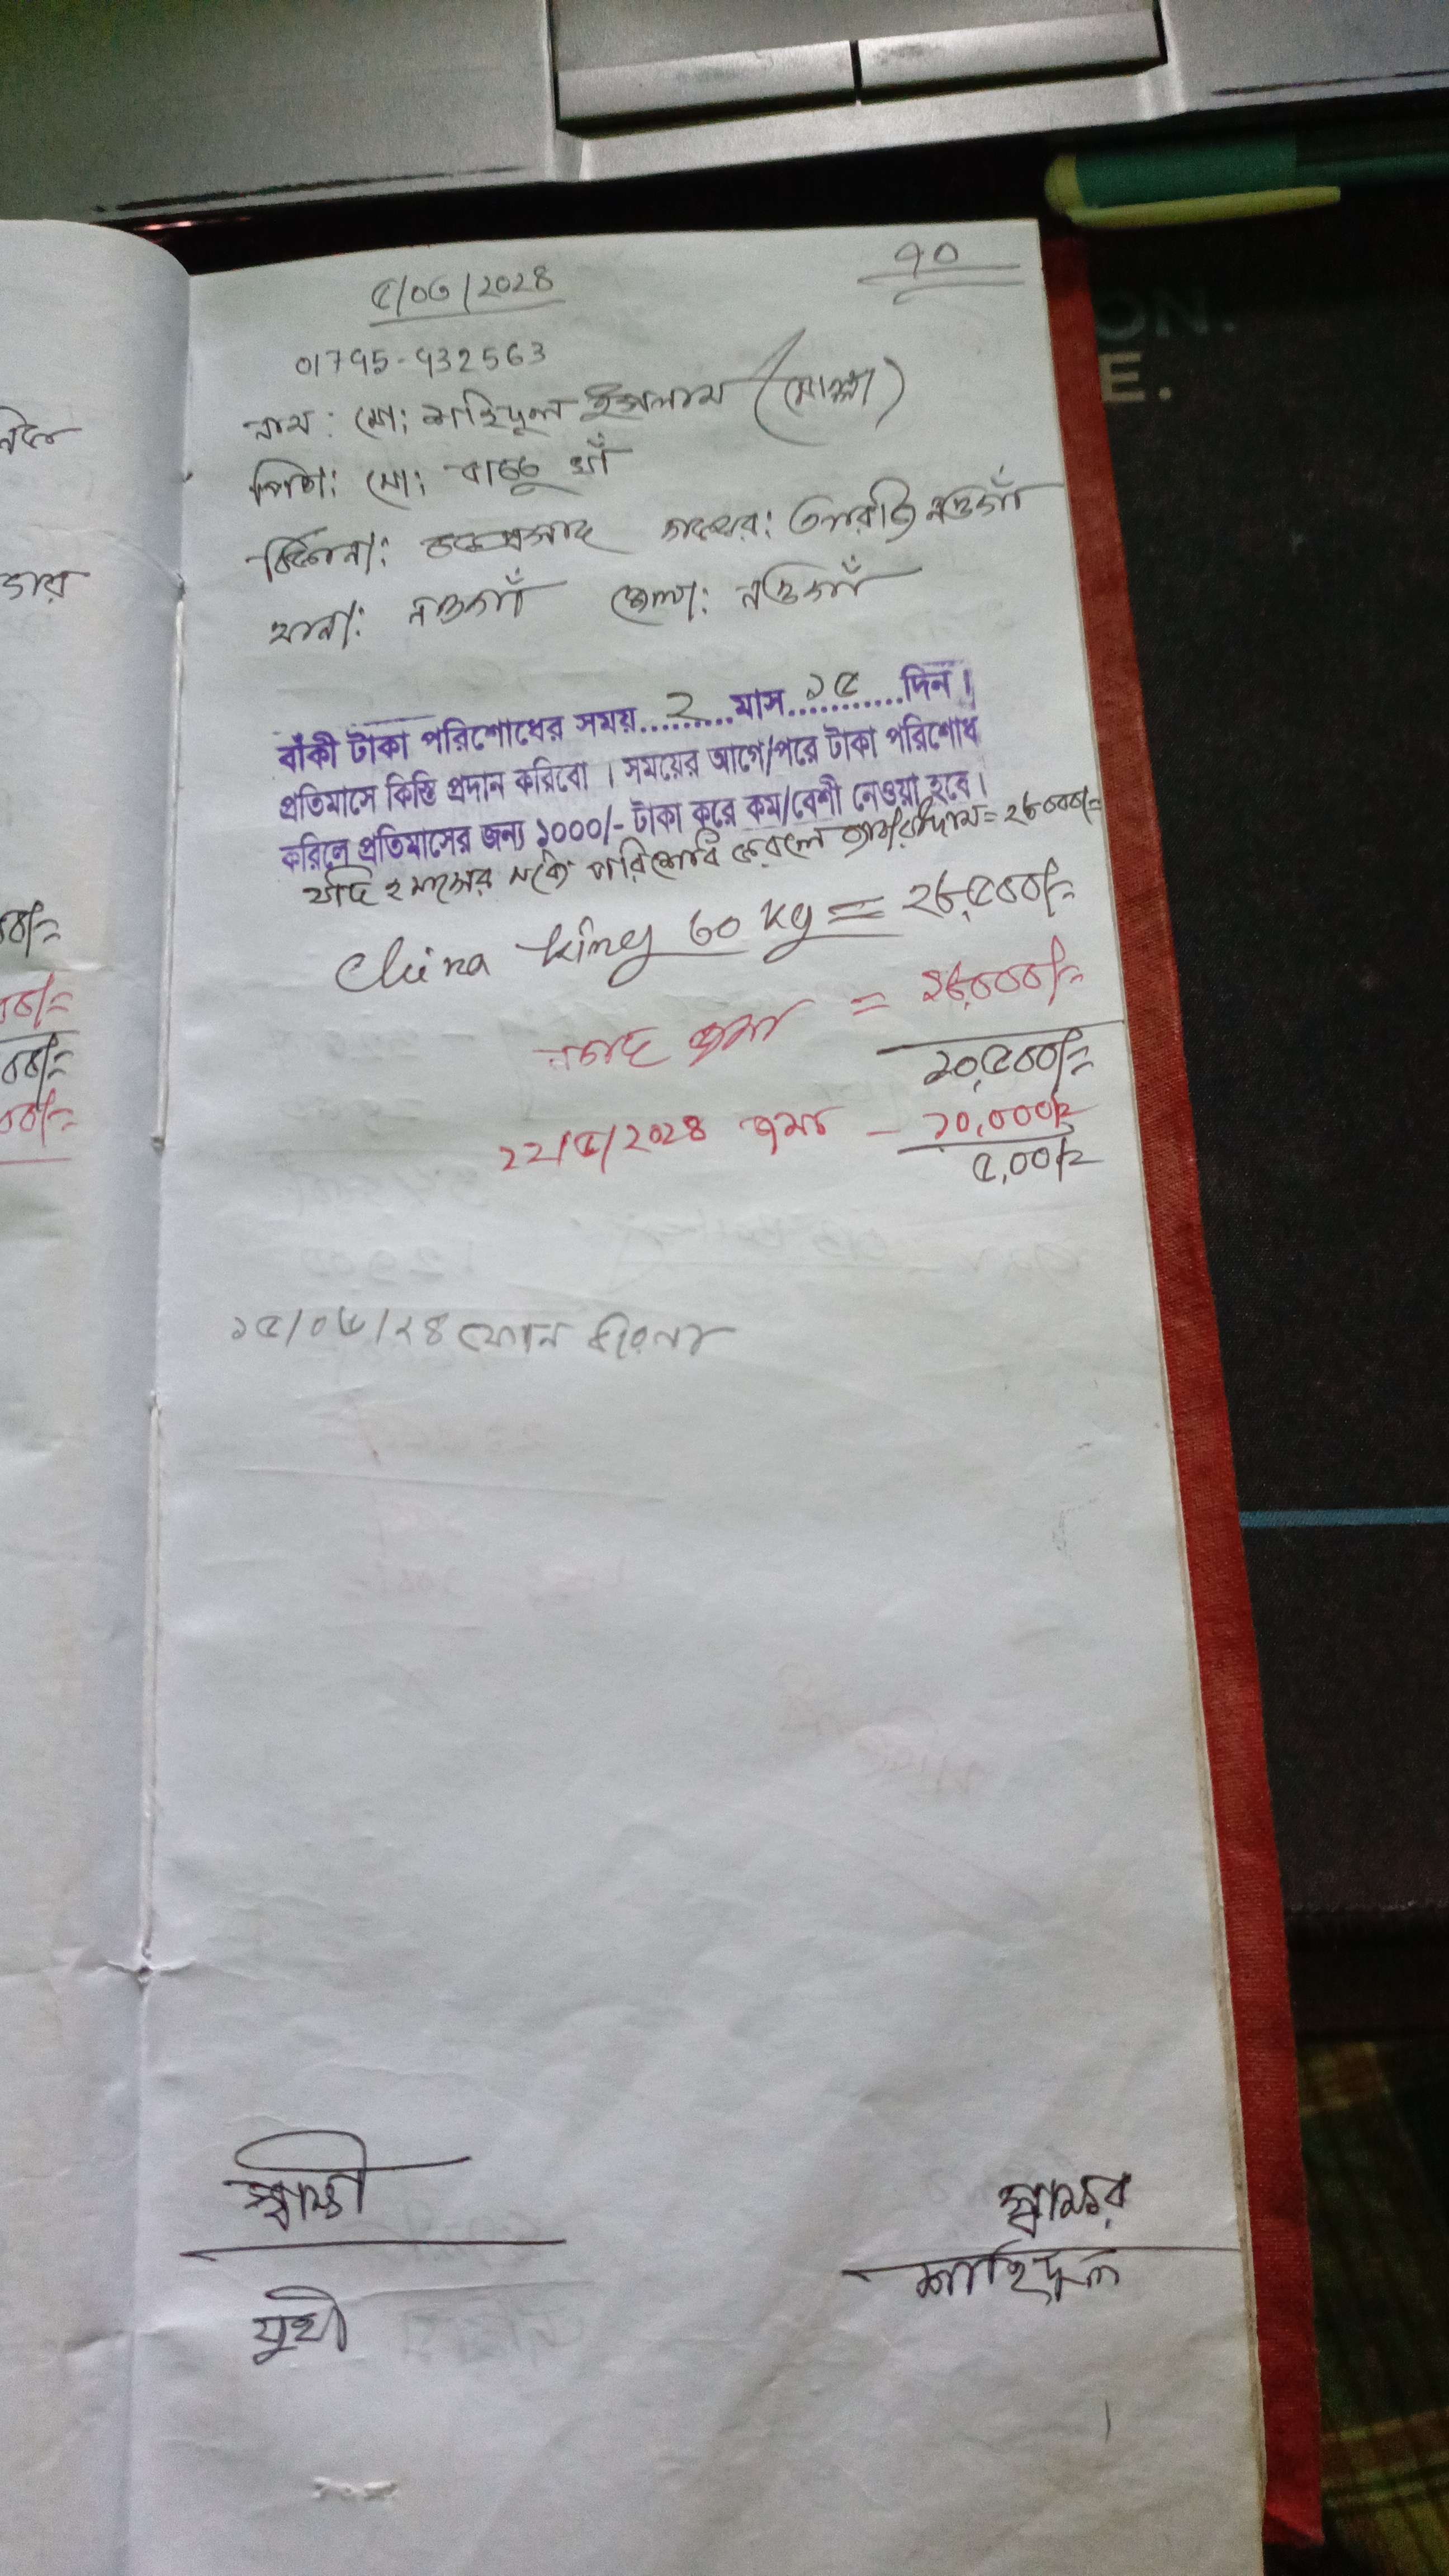 ৭০
৫/০৩/২০২৪
01795-932563
নাম: মো: শহিদুল ইসলাম (মোল্লা)
পিতা: মো: বাচ্চু খাঁ
ঠিকানা: নওগাঁ
থানা: নওগাঁ জেলা: নওগাঁ
বাঁকী টাকা পরিশোধের সময়....২....মাস....১৫....দিন।
প্রতিমাসে কিস্তি প্রদান করিবো। সময়ের আগে/পরে টাকা পরিশোধ
করিলে প্রতিমাসের জন্য ১০০০/- টাকা করে কম/বেশী নেওয়া হবে।
যদি ২ মাসের মধ্যে পরিশোধ করলে = ২৬০০০/=
China king 60 kg = ২৬,৫০০/=
নগদ জমা = ১৬,০০০/=
১০,৫০০/=
২২/৫/২০২৪ জমা - ১০,০০০/=
৫০০/=
১৫/০৬/২৪ ফোন
স্বাক্ষী
স্বাক্ষর
যুথী
শাহিদুল
ON.
E.